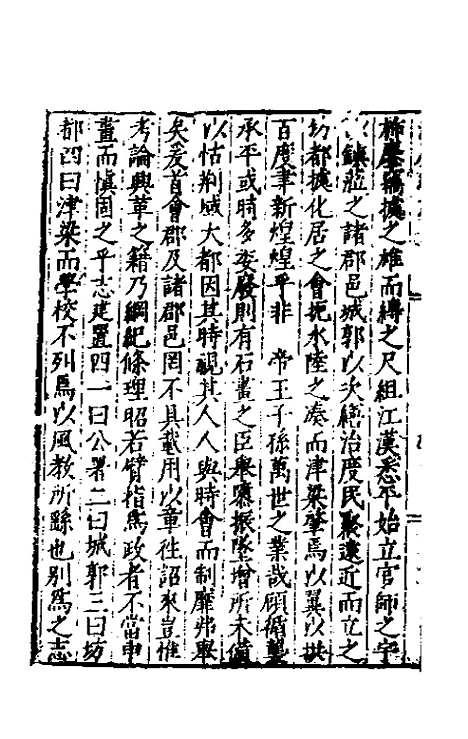 據之雄而縛之尺組江漢悉平始立官師之宇
鎮蒞之諸郡邑城郭以次繕治度民聚遠近而立之
坊都據化居之會扼水陸之湊而津梁肇焉以翼以拱
百度聿新煌煌乎非　帝王子孫萬世之業哉顧循襲
承平或時多委廢則有石畫之臣舉隳振墜增所未備
以怙荆威大都因其時視其人人與時會而制靡弗舉
矣爰首會郡及諸郡邑罔不具載用以章徃詔來豈惟
考論興革之籍乃綱紀條理昭若臂指為政者不當申
畫而慎固之乎志建置四一曰公署二曰城郭三曰坊
都四曰津梁而學校不列焉以風教所繇也别為之志